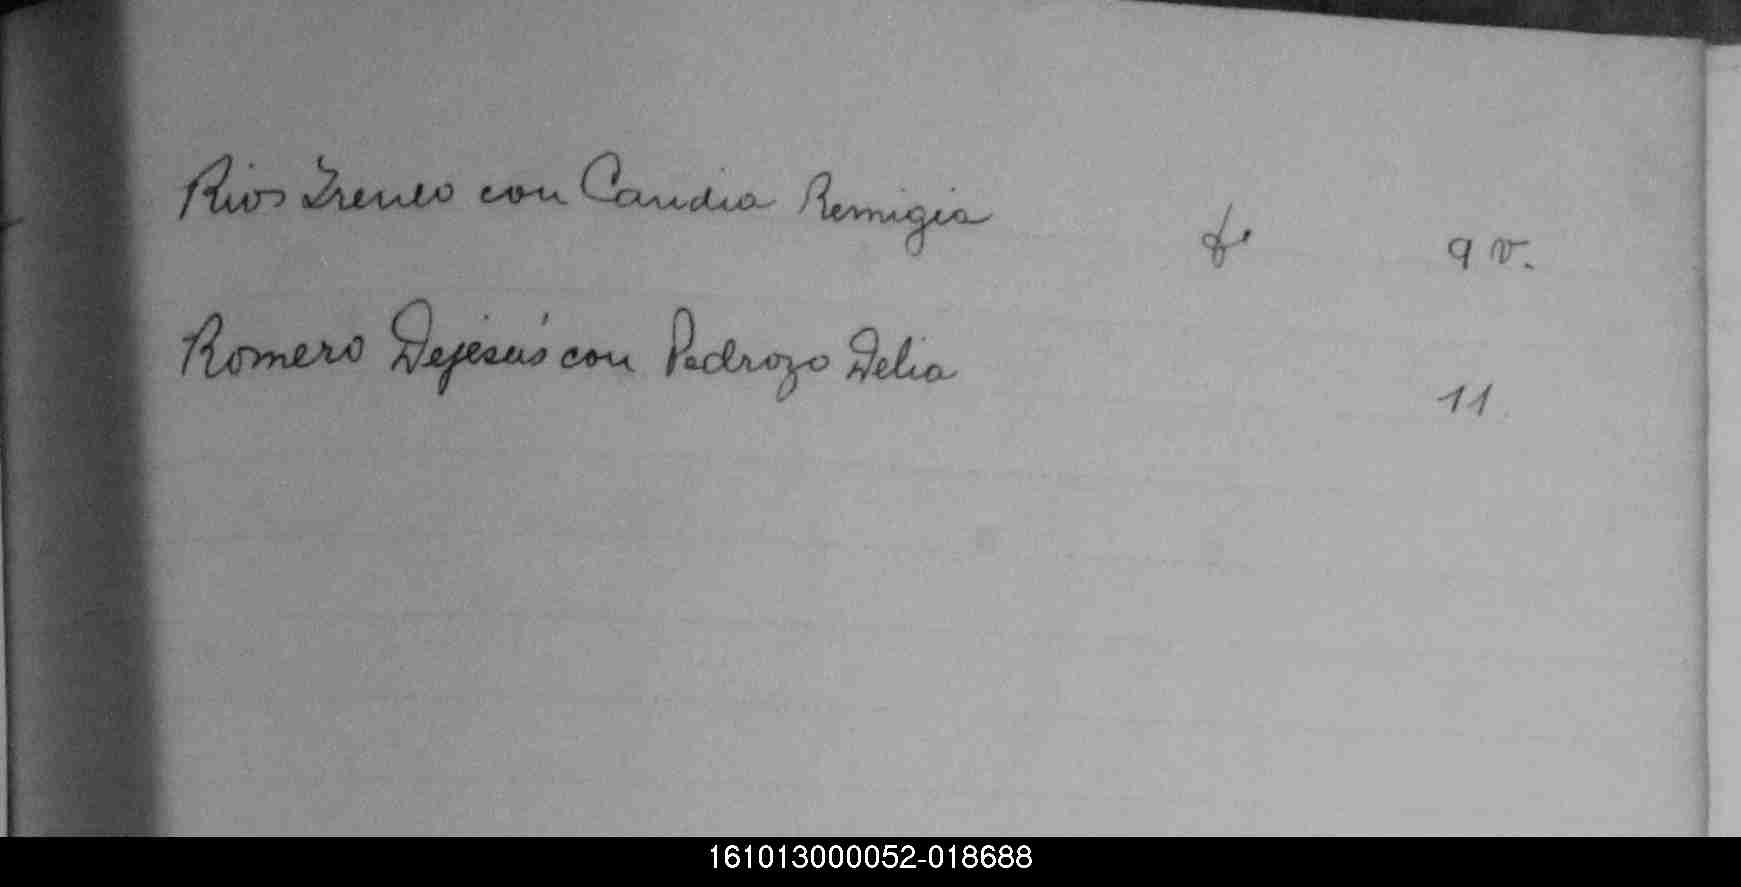 Rios Ireneo con Candia Remigia fº 9 v.
Romero Dejesús con Pedrozo Delia 11
161013000052-018688